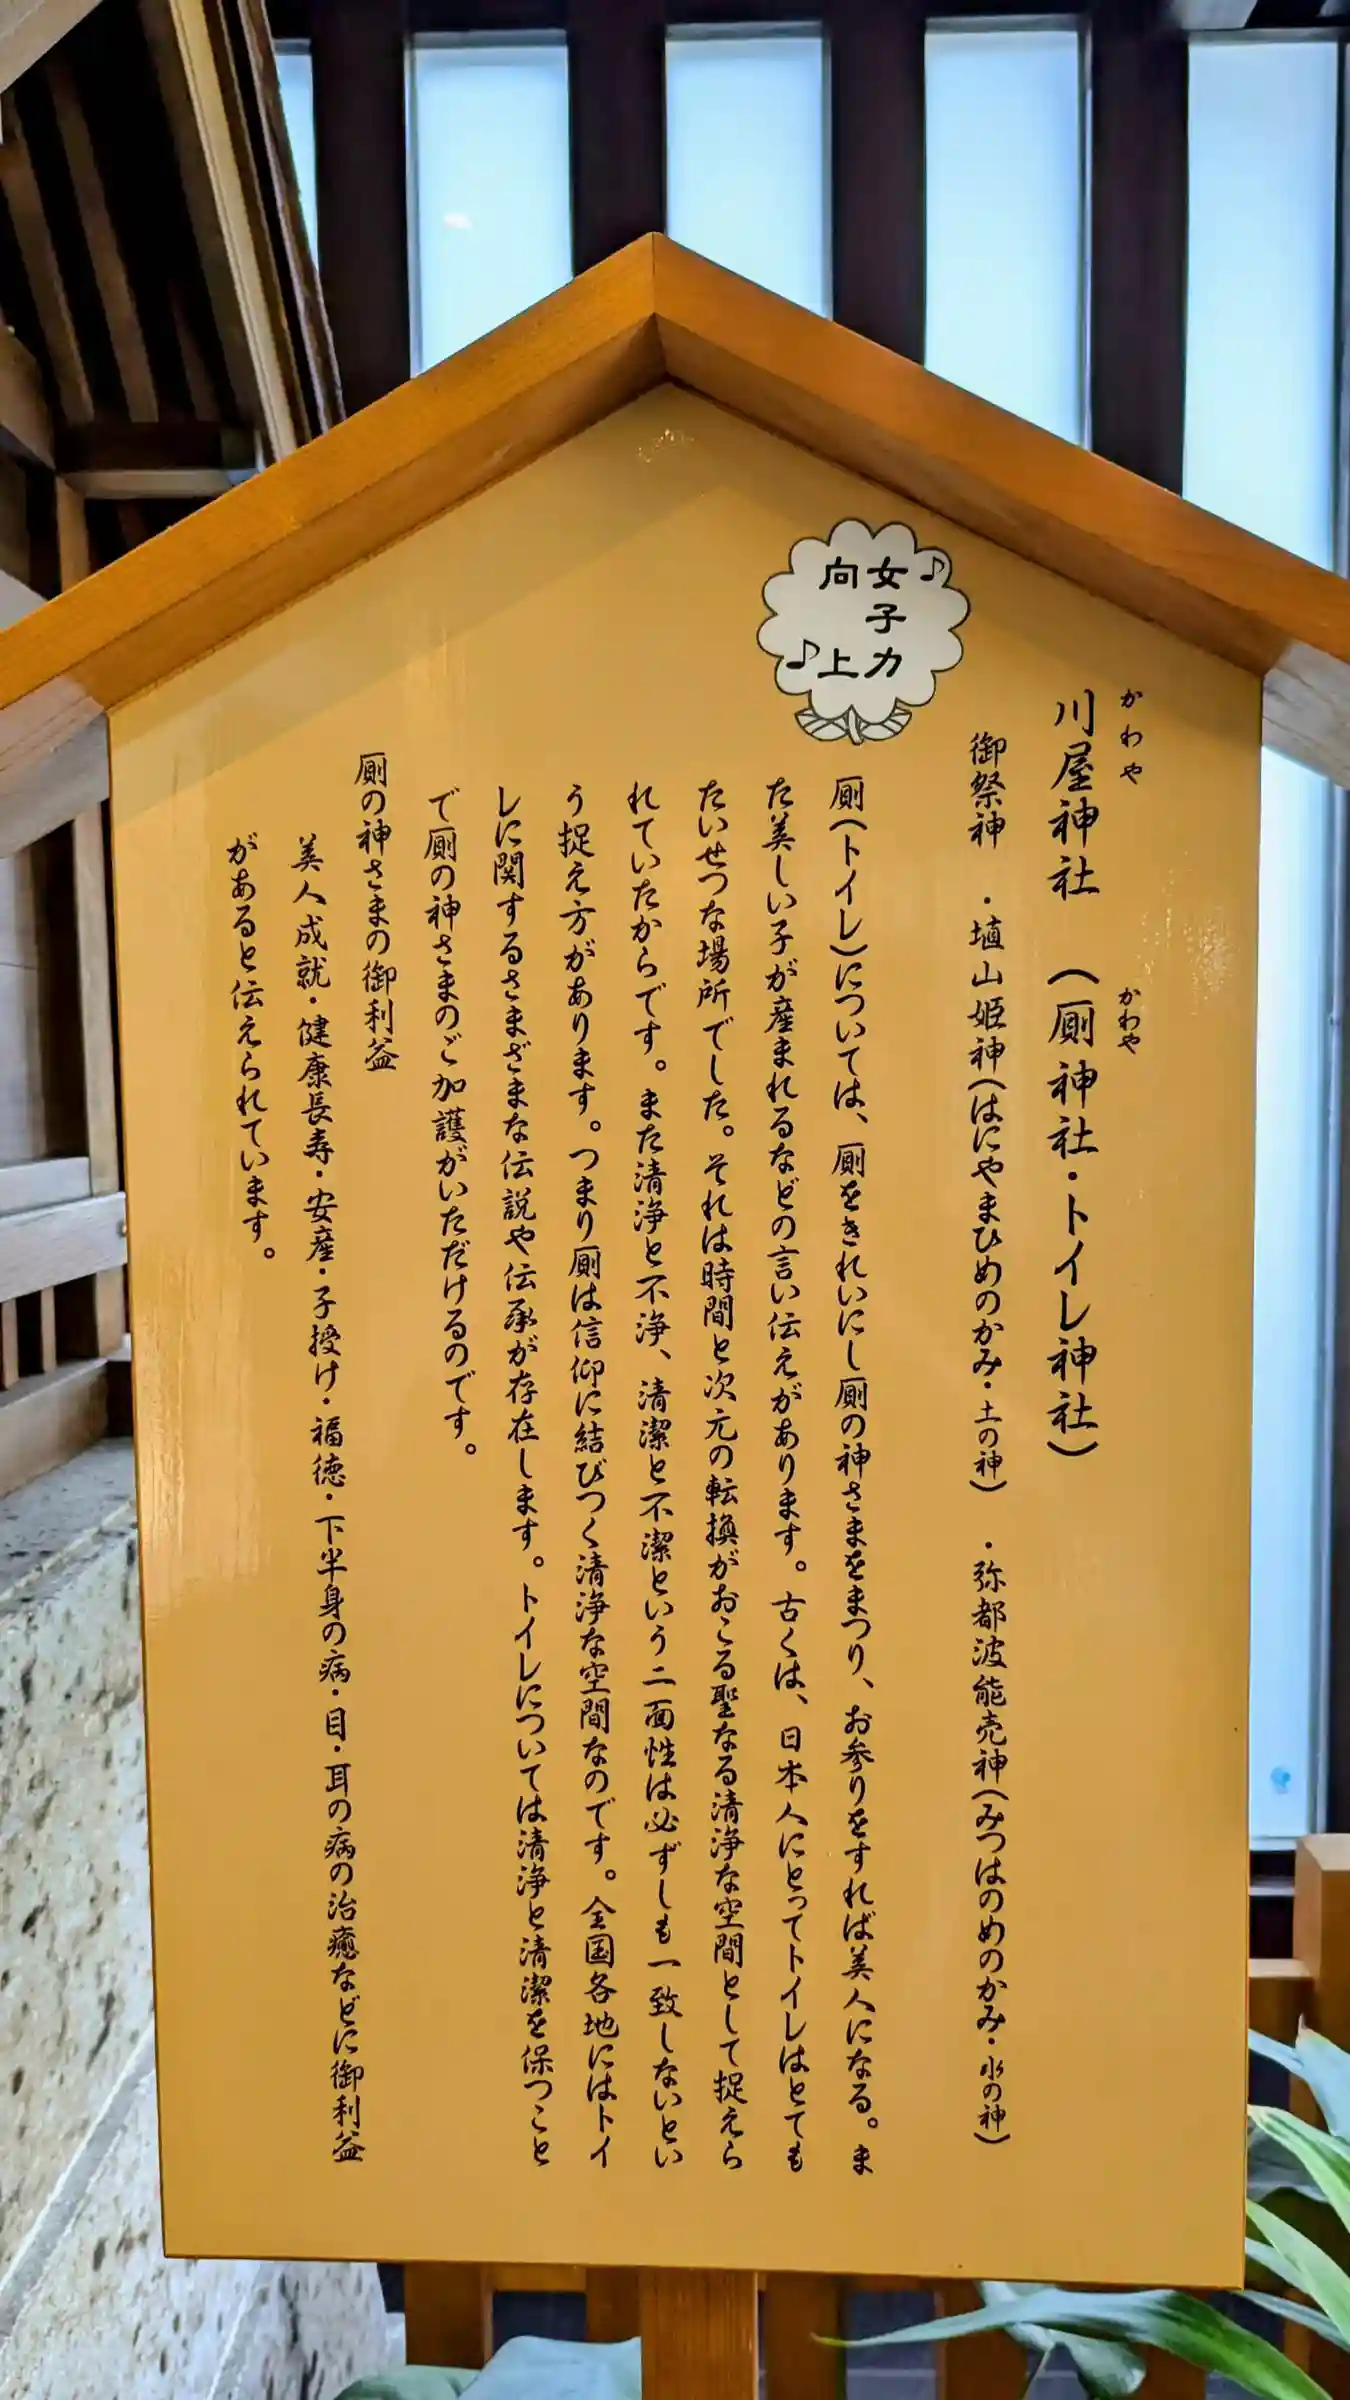 かわや　かわや
川屋神社　（厠神社・トイレ神社）
御祭神　・埴山姫神（はにやまひめのかみ・土の神）　・弥都波能売神（みつはのめのかみ・水の神）
女子力
向上
厠（トイレ）については、厠をきれいにし厠の神さまをまつり、お参りをすれば美人になる。ま
た美しい子が産まれるなどの言い伝えがあります。古くは、日本人にとってトイレはとても
たいせつな場所でした。それは時間と次元の転換がおこる聖なる清浄な空間として捉えら
れていたからです。また清浄と不浄、清潔と不潔という二面性は必ずしも一致しないとい
う捉え方があります。つまり厠は信仰に結びつく清浄な空間なのです。全国各地にはトイ
レに関するさまざまな伝説や伝承が存在します。トイレについては清浄と清潔を保つこと
で厠の神さまのご加護がいただけるのです。
厠の神さまの御利益
美人成就・健康長寿・安産・子授け・福徳・下半身の病・目・耳の病の治癒などに御利益
があると伝えられています。